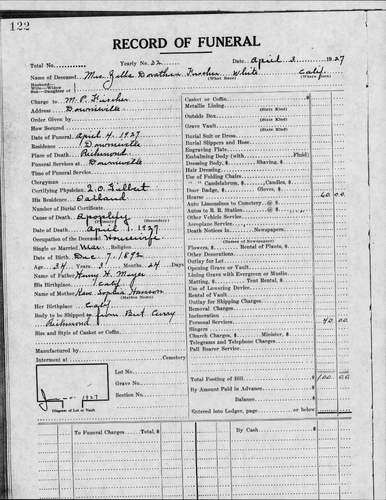 122
RECORD OF FUNERAL
Total No. Yearly No. 32 Date April 3 1927
Name of Deceased Mrs. Zella Dorathea Fischer White Calif.
(What Race) (Where Born)
Husband—
Wife—Widow
Son—Daughter of
Charge to M. P. Fischer
Address Downieville
Order Given by
How Secured
Date of Funeral April 4, 1927
Residence Downieville
Place of Death Richmond
Funeral Services at Downieville
Time of Funeral Service
Clergyman
Certifying Physician Gilbert
His Residence Oakland
Number of Burial Certificate
Cause of Death Apoplexy
(Primary) (Secondary)
Date of Death April 1, 1927
Occupation of the Deceased Housewife
Single or Married Mar. Religion
Date of Birth Dec. 7, 1892
Age 34 Years 3 Months 24 Days
Name of Father Henry H. Meyer
His Birthplace Calif
Name of Mother Sophia Hanson
(Maiden Name)
Her Birthplace Calif
Body to be Shipped from Bert Curry
Richmond
Size and Style of Casket or Coffin
Manufactured by
Interment at Cemetery
Lot No.
Grave No.
Section No.
1927
Diagram of Lot or Vault
Casket or Coffin
(State Kind)
Metallic Lining
(State Kind)
Outside Box
(State Kind)
Grave Vault
(State Kind)
Burial Suit or Dress
Burial Slippers and Hose
Engraving Plate
Embalming Body (with Fluid)
Dressing Body, $ , Shaving, $
Hair Dressing
Use of Folding Chairs
" " Candelabrum, $ , Candles, $
Door Badge, $ , Gloves, $
Hearse 60 00
Auto Limousines to Cemetery @ $
Autos to R. R. Station @ $
Other Vehicle Service
Aeroplane Service
Death Notices in Newspapers
(Names of Newspapers)
Flowers, $ Rental of Plants, $
Other Decorations
Outlay for Lot
Opening Grave or Vault
Lining Grave with Evergreen or Muslin
Matting, $ Tent Rental, $
Use of Lowering Device
Rental of Vault
Outlay for Shipping Charges
Removal Charges
Incineration
Personal Services 40 00
Singers
Church Charges, $ Minister, $
Telegrams and Telephone Charges
Pall Bearer Service
Total Footing of Bill $ 100 00
By Amount Paid in Advance
Balance
Entered into Ledger, page or below
To Funeral Charges Total, $
By Cash $